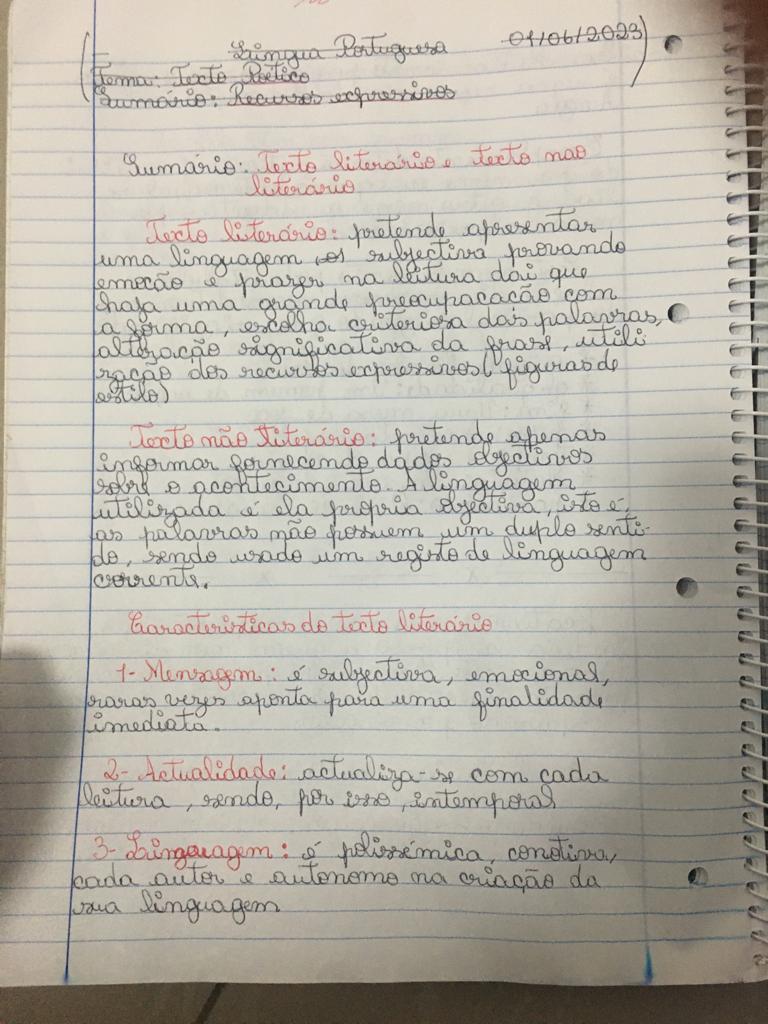 Língua Portuguesa 01/06/2023
Tema: Texto Poético
Sumário: Recursos expressivos
Sumário: Texto literário e texto nao
literário
Texto literário: pretende apresentar
uma linguagem subjectiva provando
emoção e prazer na leitura dai que
haja uma grande preocupacação com
a forma, escolha criteriosa das palavras,
alteração significativa da frase, utili
zação dos recursos expressivos (figuras de
estilo)
Texto não literário: pretende apenas
informar fornecendo dados objectivos
sobre o acontecimento. A linguagem
utilizada é ela propria objectiva, isto é,
as palavras não possuem um duplo senti-
do, sendo usado um registo de linguagem
corrente.
Caracteristicas do texto literário
1- Mensagem: é subjectiva, emocional,
raras vezes aponta para uma finalidade
imediata.
2- Actualidade: actualiza-se com cada
leitura, sendo, por isso, intemporal
3- Linguagem: é polissémica, conotiva,
cada autor e autonomo na criação da
sua linguagem